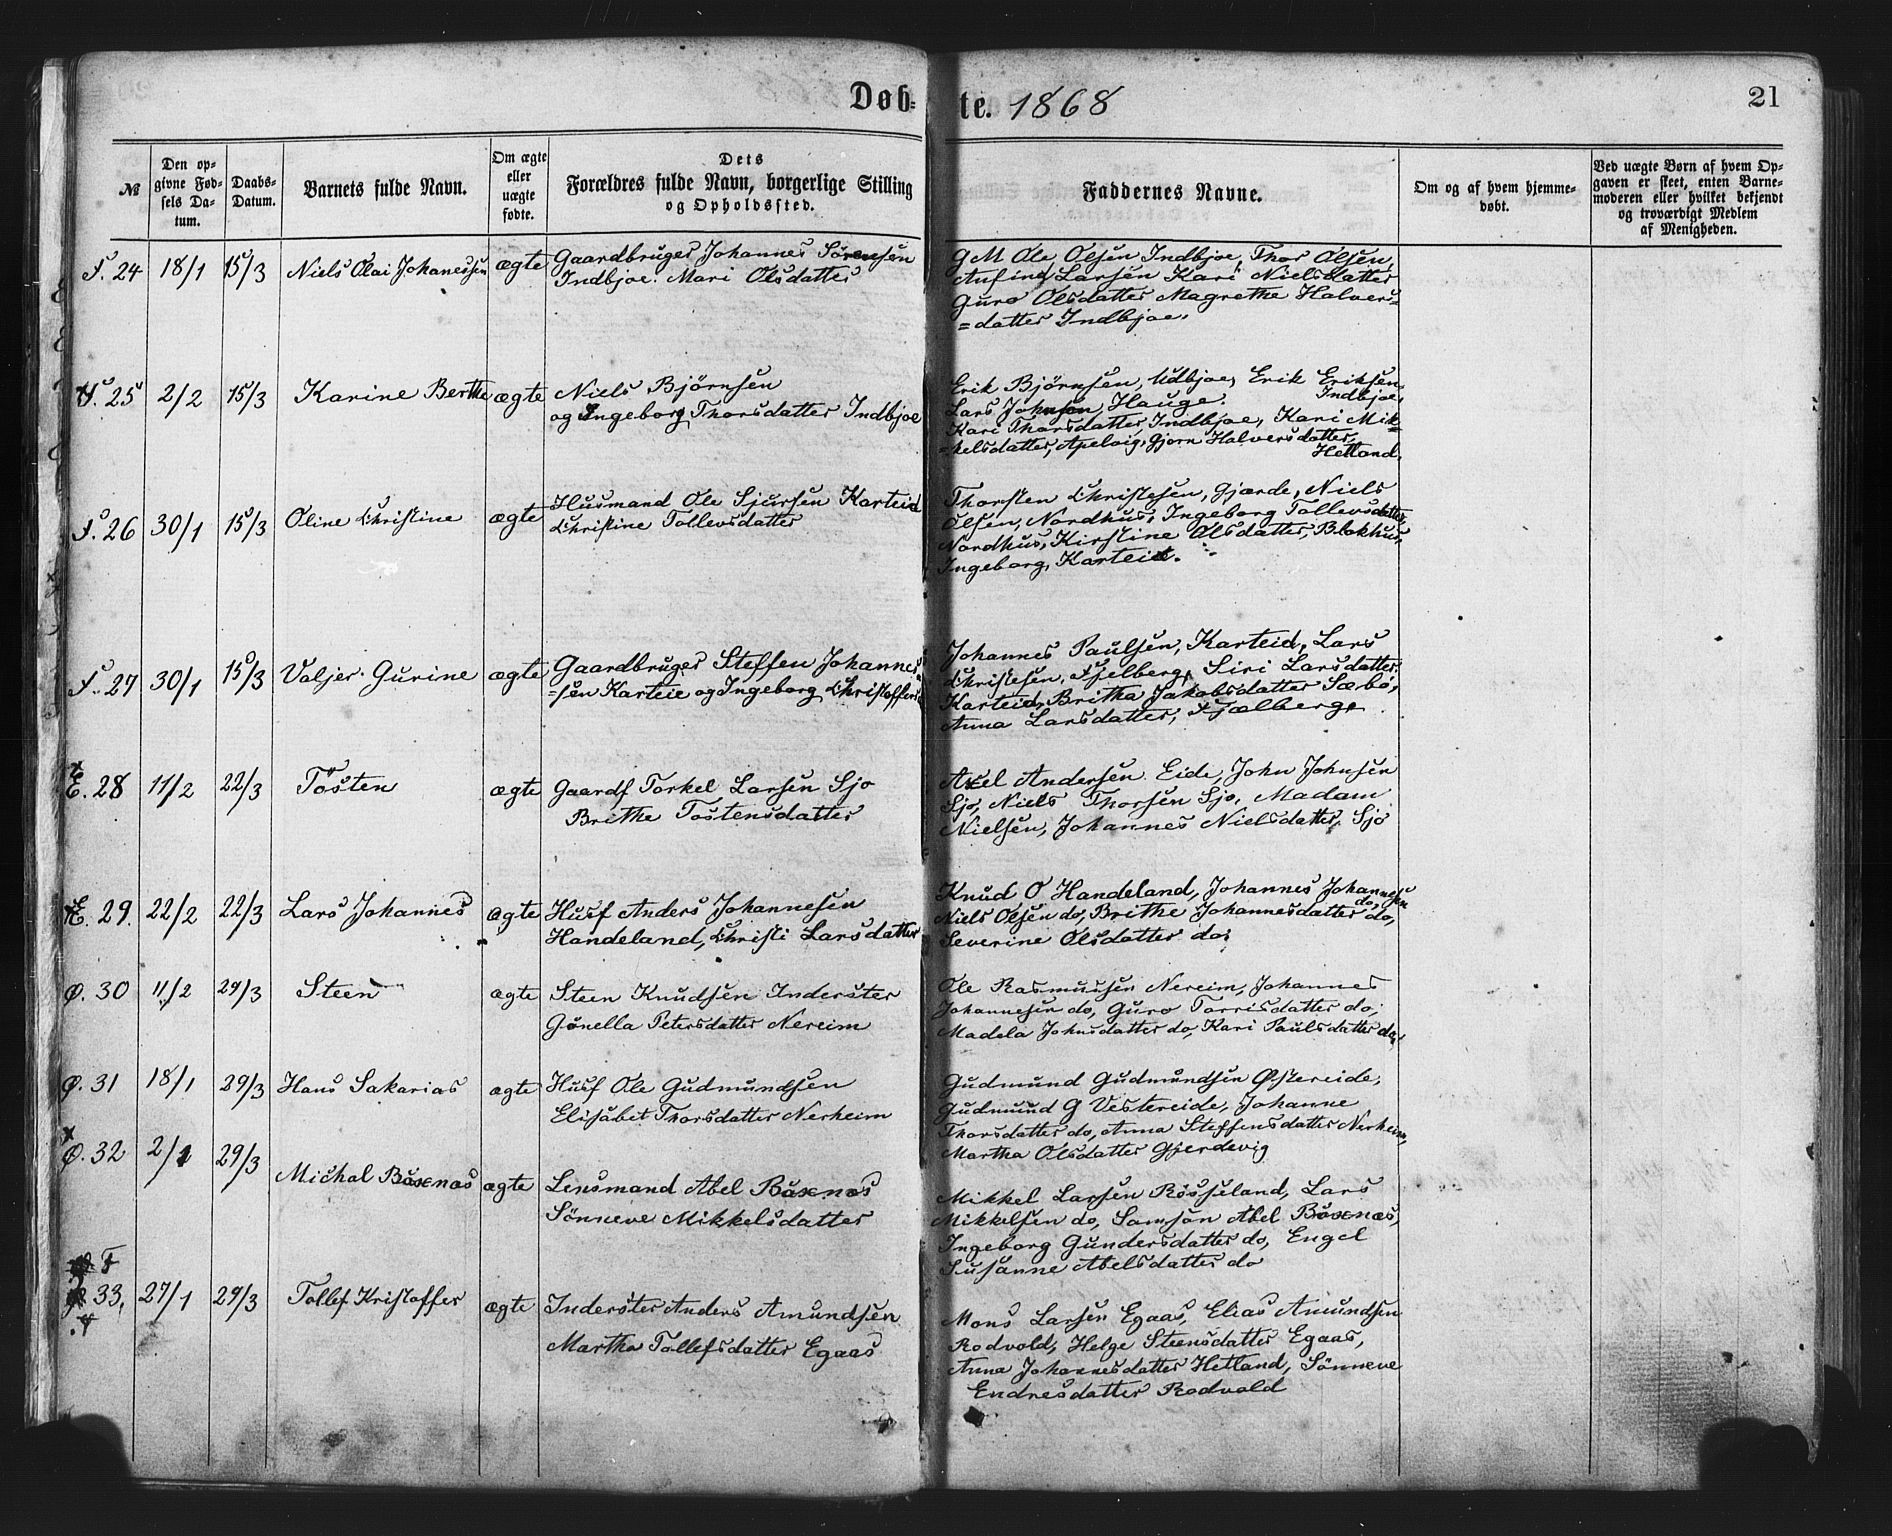 Døb=
te. 1868
21
№
Den op-
givne Fød-
sels Da-
tum.
Daabs-
Datum.
Barnets fulde Navn.
Om ægte
eller
uægte
fødte.
Dets
Forældres fulde Navn, borgerlige Stilling
og Opholdssted.
Faddernes Navne.
Om og af hvem hjemme-
døbt.
Ved uægte Børn af hvem Op-
gaven er skeet, enten Barne-
moderen eller hvilket bekjendt
og troværdigt Medlem
af Menigheden.
24 18/1 15/3 Niels Olai Johanessen ægte Gaardbruger Johannes Sørensen
Indbjoe. Mari Olsdatter
GM Ole Olsen Indbjoe, Thor Olsen,
Anfind Larsen Kari Nielsdatter
Guro Olsdatter Magrethe Halvers=
=datter Indbjoe.
25 2/2 15/3 Karine Berthe ægte Niels Bjørnsen
og Ingeborg Thorsdatter Indbjoe
Erik Bjørnsen, Udbjoe, Erik Eriksen,
Indbjoe,
Lars Johnsen, Hauge.
Kari Thorsdatter, Indbjoe, Kari Mik=
=kelsdatter, Apelvig, Gjørn Halversdatter,
Hetland.
26 30/1 15/3 Oline Christine ægte Husmand Ole Sjursen Karteid
Christine Tollevsdatter
Thorsten Christesen, Gjærde, Niels
Olsen, Nordhus, Ingeborg Tollevsdatter,
Nordhus, Kirstine Olsdatter, Blokhus,
Ingeborg, Karteid.
27 30/1 15/3 Valjer Gurine ægte Gaardbruger Steffen Johannes=
=sen Karteie og Ingeborg Christoffers
Johannes Paulsen, Karteid, Lars
Christesen, Fjelberg, Siri Larsdatter
Karteid, Britha Jakobsdatter Sæbø,
Anna Larsdatter, Fjælberg.
E. 28 11/2 22/3 Tösten ægte Gaardf Torkel Larsen Sjo
Brithe Tostensdatter
Axel Andersen Eide, John Johnsen
Sjo, Niels Thorsen Sjo, Madam
Nielsen, Johannes Nielsdatter, Sjo
E. 29. 22/2 22/3 Lars Johannes ægte Husf Anders Johannesen
Handeland, Christi Larsdatter
Knud O Handeland, Johannes Johannesen
do,
Niels Olsen do, Brithe Johannesdatter do,
Severine Olsdatter do.
Ø. 30 11/2 29/3 Steen ægte Steen Knudsen Inderster
Gønella Petersdatter Nereim
Ole Rasmussen Nereim, Johannes
Johannesen do, Guro Torrisdatter do,
Madela Johnsdatter do, Kari Paulsdatter do,
Ø. 31 18/1 29/3 Hans Sakarias ægte Husf Ole Gudmundsen
Elisabet Thorsdatter Nerheim
Gudmund Gudmundsen Østereide,
Gudmund G Vestereide, Johanne
Thorsdatter do, Anna Steffensdatter Nerheim,
Martha Olsdatter Gjerdevig
Ø. 32 2/1 29/3 Michal Boxnæs ægte Lensmand Abel Boxnæs
Sönneve Mikkelsdatter
Mikkel Larsen Røsseland, Lars
Mikkelsen do, Samson Abel Boxnæs,
Ingeborg Gundersdatter do, Engel
Susanne Abelsdatter do
F
33, 27/1 29/3 Tollef Kristoffer ægte Inderster Anders Amundsen
Martha Tollefsdatter Egaas
Mons Larsen Egaas, Elias Amundsen
Rodvold, Helge Steensdatter Egaas,
Anna Johannesdatter Hetland, Sönneve
Endresdatter Rodvold